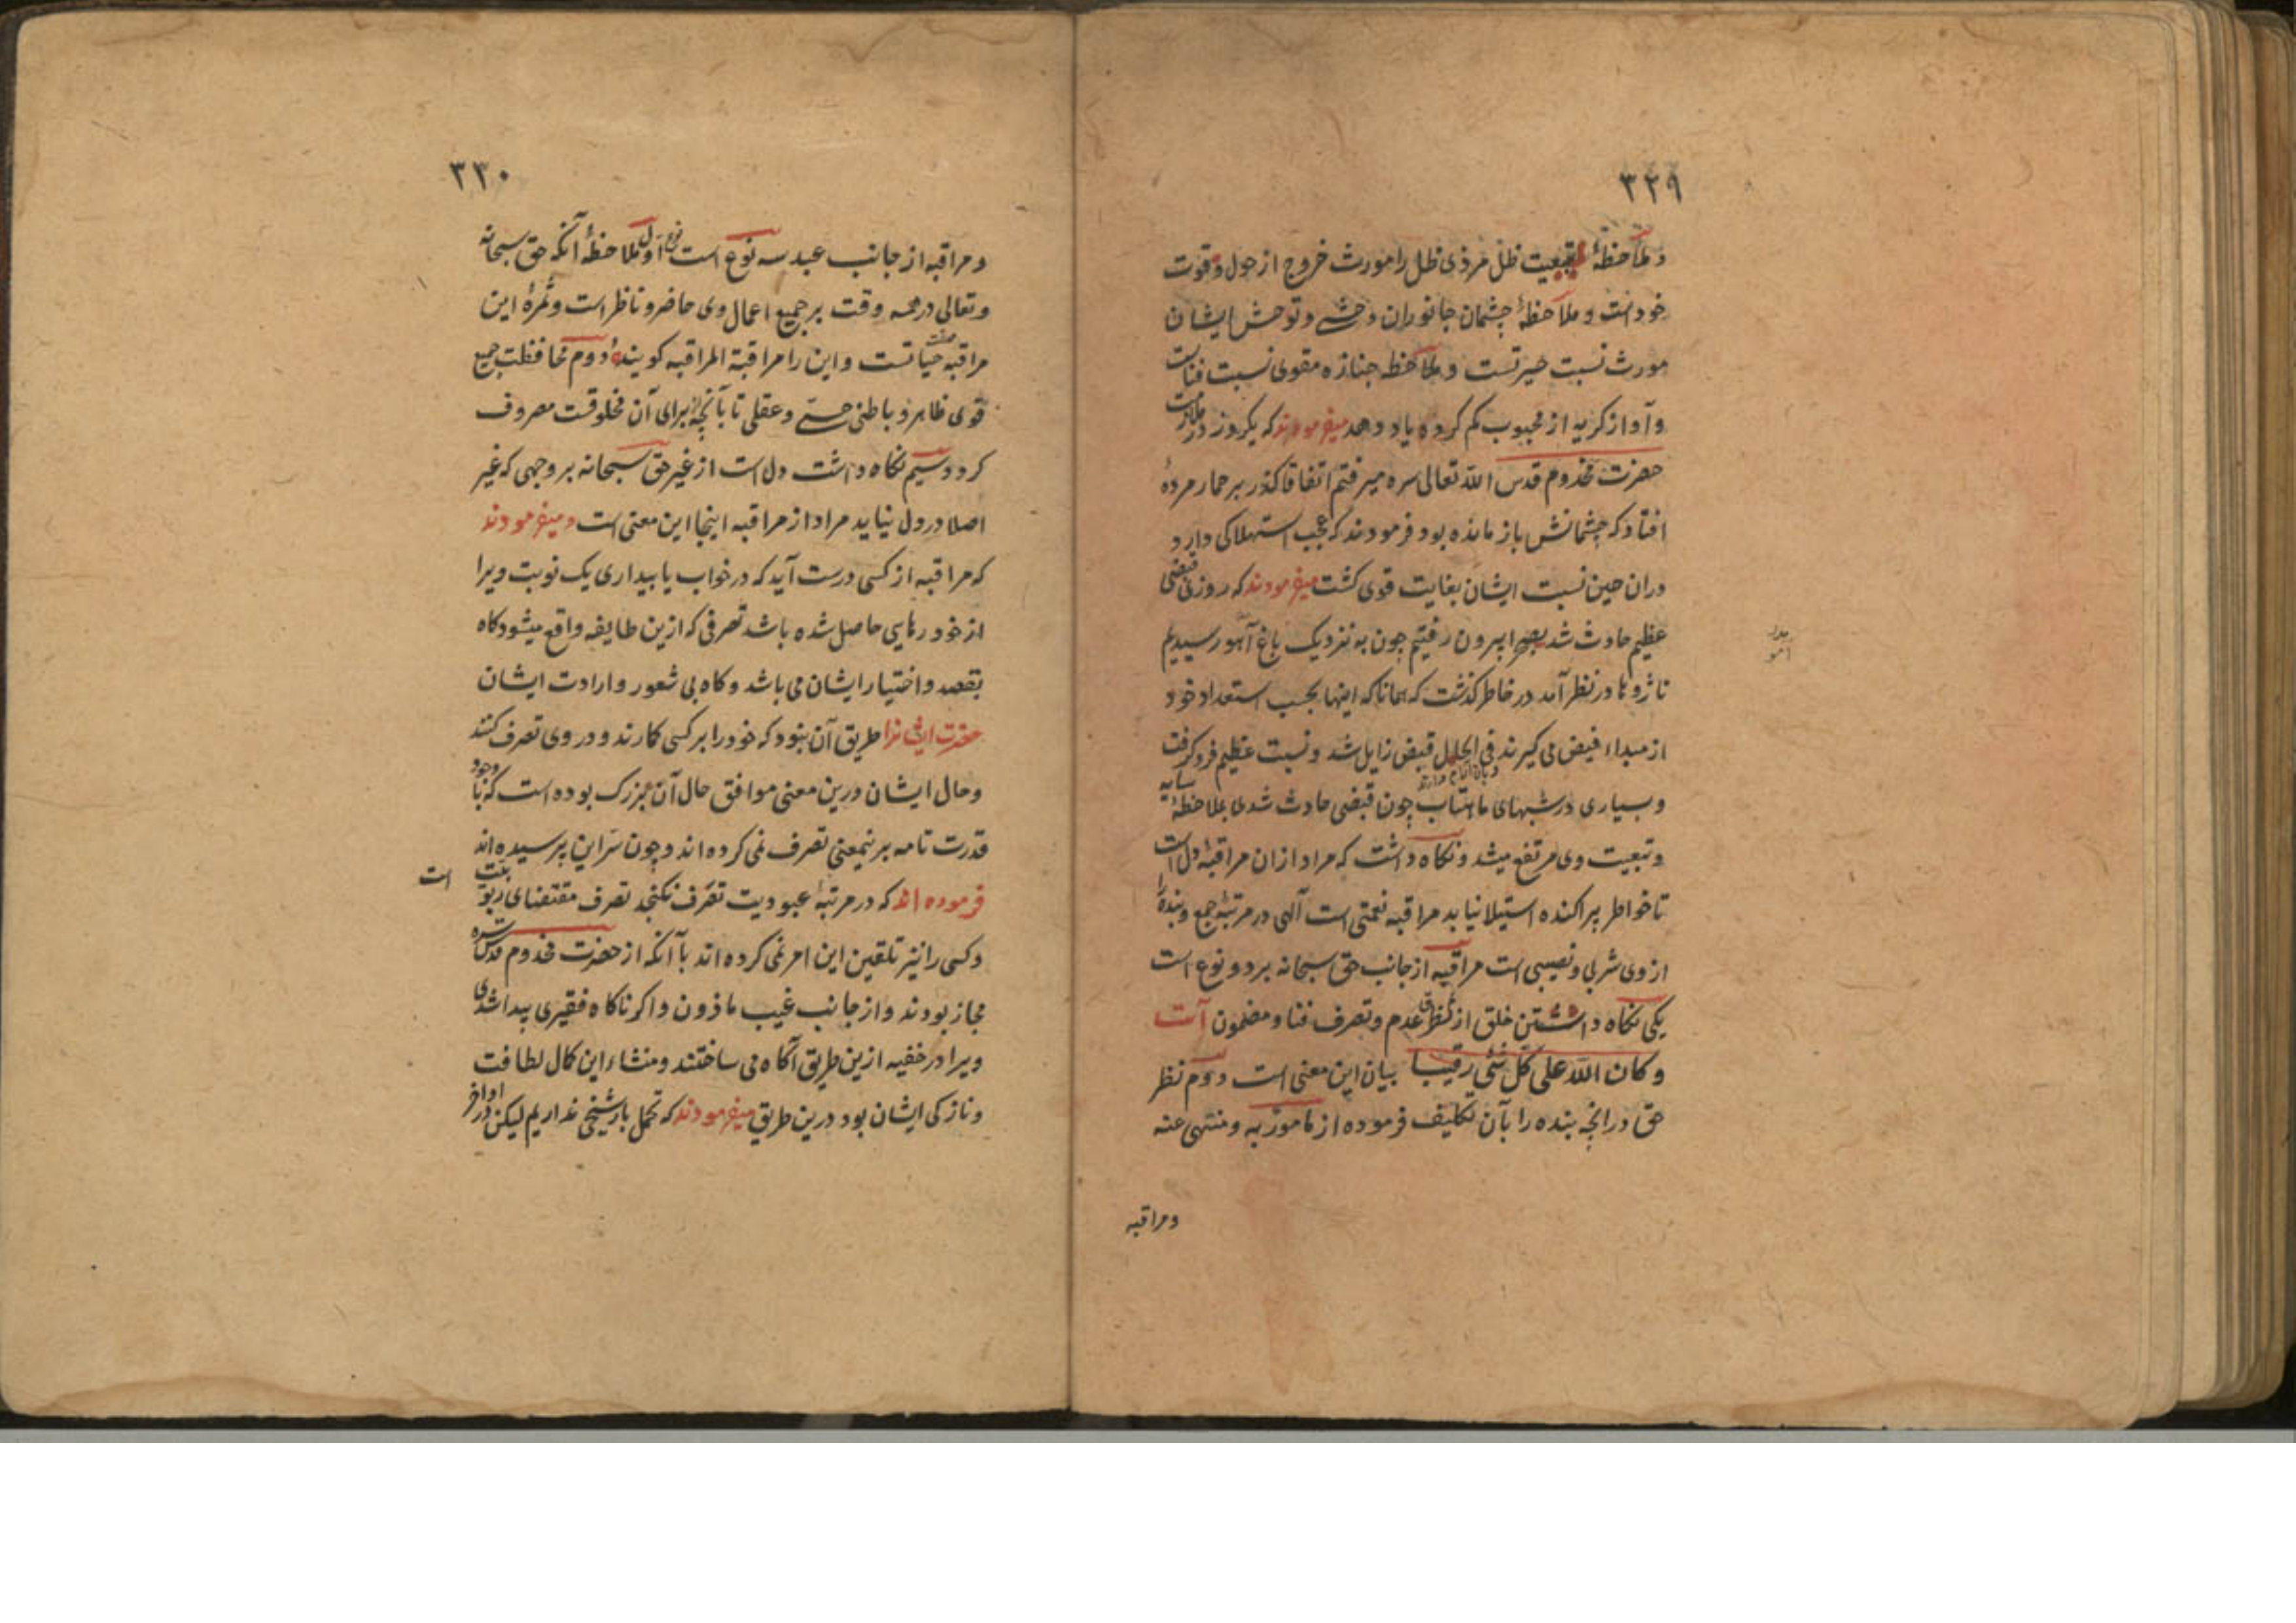 ۳۲۹
و ملاحظهٔ تبعیت ظل مر ذی ظل را مورث خروج از حول و قوت
خود است و ملاحظهٔ چشمان جانوران وحشی و توحش ایشان
مورث نسبت حیرتست و ملاحظه جنازه مقوی نسبت فناست
و آواز کریه از محبوب کم کرده یاد دهد میفرمودند که یکروز در ملازمت
حضرت مخدوم قدس الله تعالی سره میرفتم اتفاقا کذر بر حمار مردهٔ
افتاد که چشمانش باز مانده بود فرمودند که عجب استهلاکی دارد
دران حین نسبت ایشان بغایت قوی کشت میفرمودند که روزی قبضی
عظیم حادث شد بصحرا بیرون رفتیم چون به نزدیک باغ آهو رسیدیم
ناژوها در نظر آمد در خاطر کذشت که همانا که اینها بحسب استعداد خود
از مبداء فیض می کیرند فی الحال قبض زایل شد و نسبت عظیم فروکرفت
و بسیاری در شبهای ماهتاب چون قبضی حادث شدی بملاحظهٔ سایه
و تبعیت وی مرتفع میشد و نکاه داشت که مراد ازان مراقبهٔ دل است
تا خواطر پراکنده استیلا نیابد مراقبه نعمتی است آلهی در مرتبهٔ جمع و بنده را
از وی شربی و نصیبی است مراقبه از جانب حق سبحانه بر دو نوع است
یکی نکاه داشتن خلق از تطرق عدم و تصرف فنا و مضمون آیت
و کان الله علی کل شئی رقیبا بیان این معنی است دوم نظر
حق در انچه بنده را بآن تکلیف فرموده از مامور به و منتهی عنه
و مراقبه
۳۳۰
و مراقبه از جانب عبد سه نوع است نوع اول ملاحظهٔ آنکه حق سبحانه
و تعالی در همه وقت بر جمیع اعمال وی حاضر و ناظر است و ثمرهٔ این
مراقبه حیاتست و این را مراقبة المراقبه کویند دوم محافظت جمیع
قوی ظاهر و باطنی حسی و عقلی تا بآنچه از برای آن مخلوقست مصروف
کردد سیم نکاه داشت دل است از غیر حق سبحانه بر وجهی که غیر
اصلا در دل نیاید مراد از مراقبه اینجا این معنی است و میفرمودند
که مراقبه از کسی درست آید که در خواب یا بیداری یک نوبت ویرا
از خود رهایی حاصل شده باشد تصرفی که ازین طایفه واقع میشود کاه
بقصد و اختیار ایشان می باشد و کاه بی شعور و ارادت ایشان
حضرت ایشانرا طریق آن نبود که خود را بر کسی کمارند و در وی تصرف کنند
و حال ایشان درین معنی موافق حال آن بزرک بوده است که با وجود
قدرت تامه بر نیمعنی تصرف نمی کرده اند و چون سر این پرسیده اند
فرموده اند که در مرتبهٔ عبودیت تصرف نکنجد تصرف مقتضای ربوبیت است
و کسی را نیز تلقین این امر نمی کرده اند با آنکه از حضرت مخدوم قدس سره
مجاز بودند و از جانب غیب ماذون و اکر ناکاه فقیری پیدا شدی
ویرا در خفیه ازین طریق آکاه می ساختند و منشاء این کمال لطافت
و نازکی ایشان بود درین طریق میفرمودند که تحمل بار شیخی نداریم لیکن در اواخر